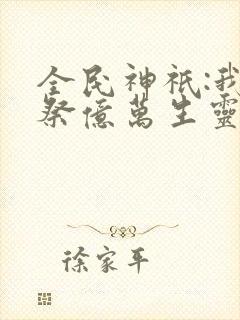 全民神祇:我
祭億萬生靈
徐家平